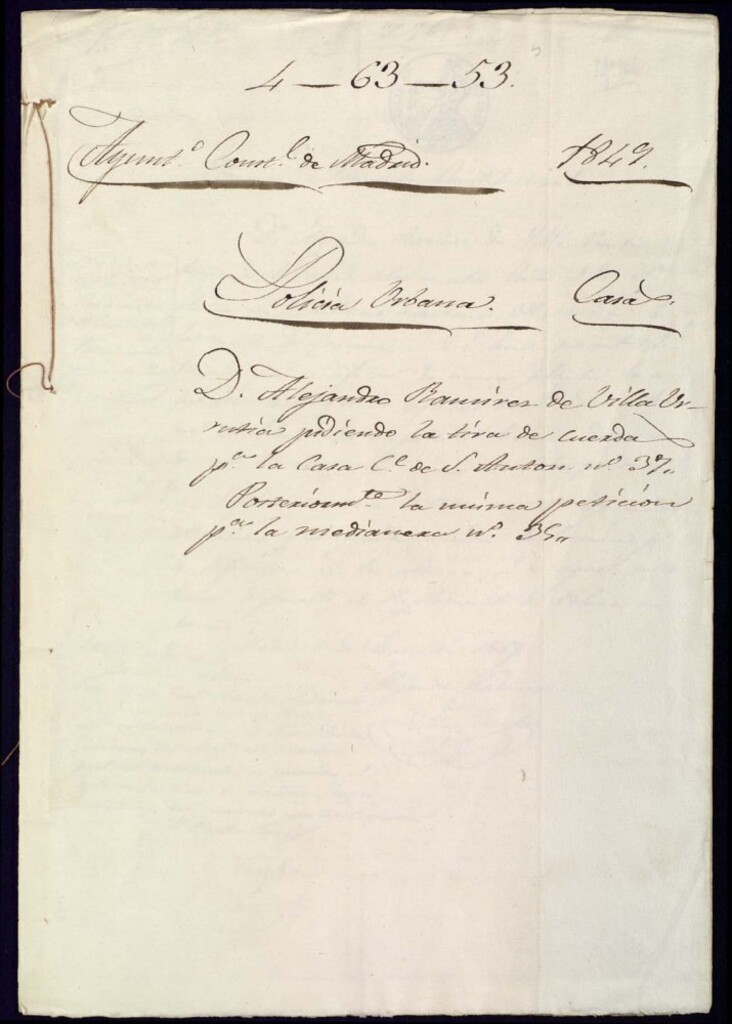 4 — 63 — 53.
Ayunt.º Const.l de Madrid. 1849.
Policía Urbana. Casas.
D. Alejandro Ramirez de Villa Ur-
rutia pidiendo la tira de cuerda
p.ª la Casa C.e de S. Anton nº. 37,,
Posteriorm.te la misma peticion
p.ª la medianera nº. 35,,